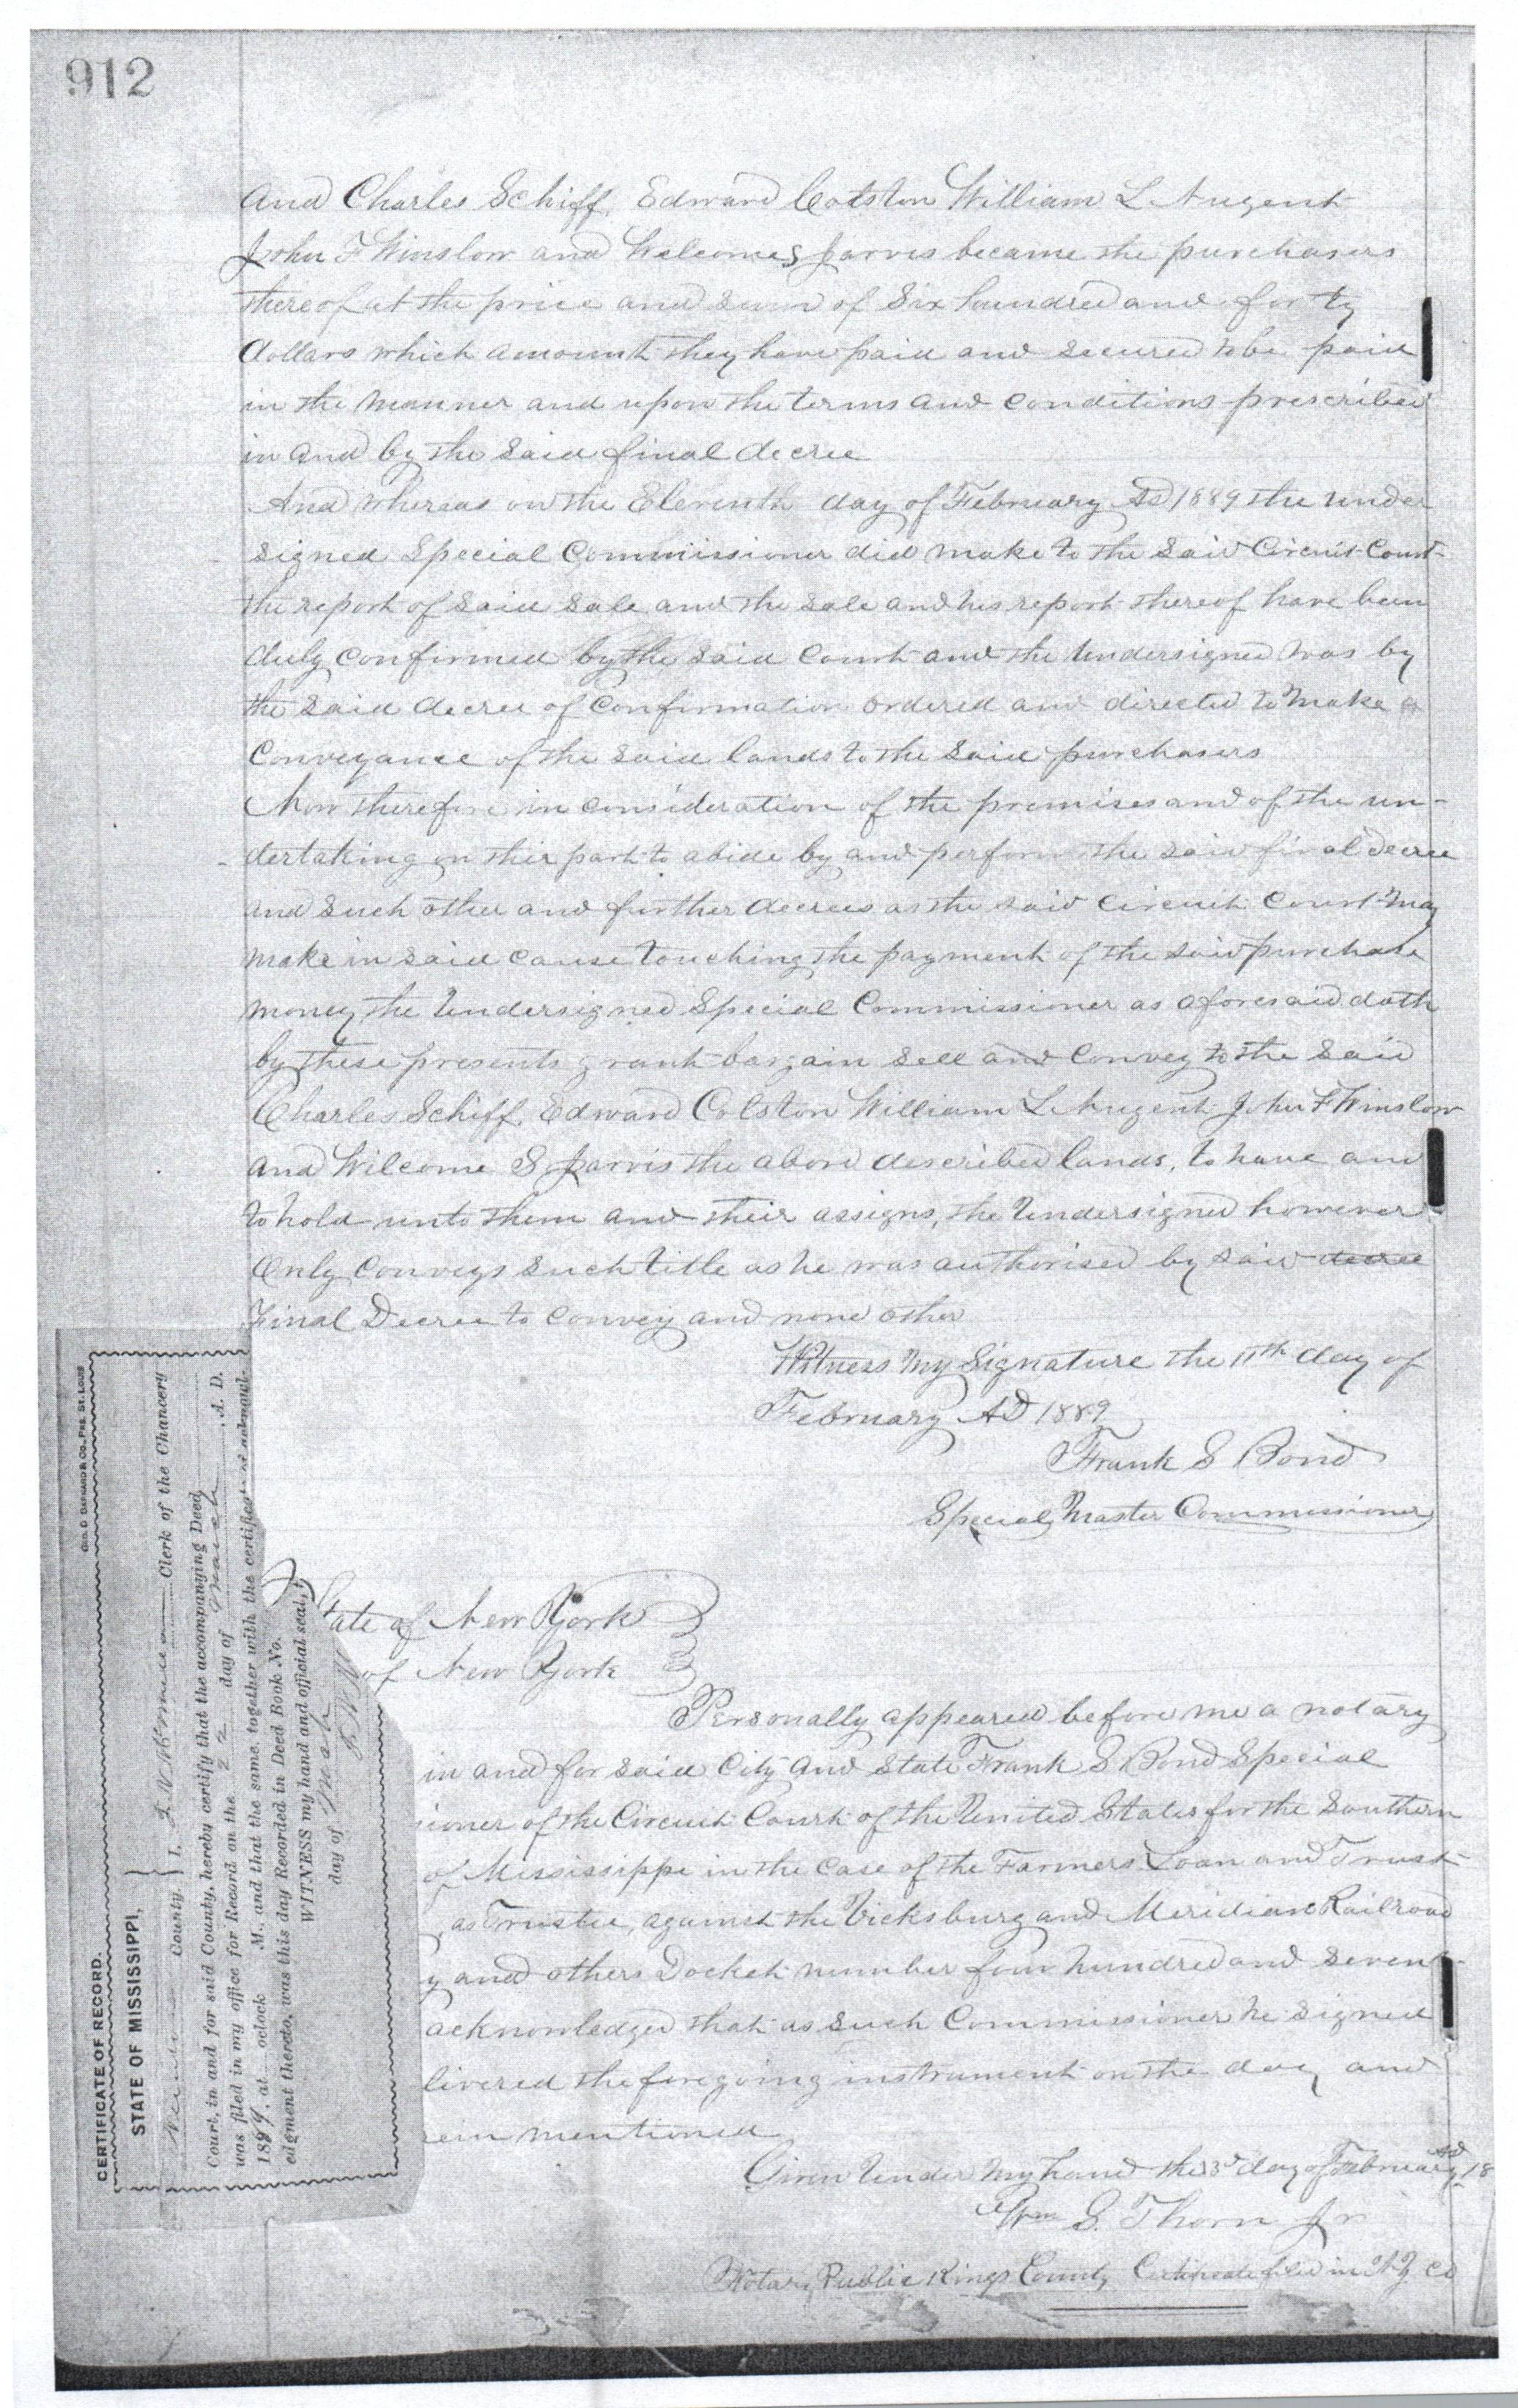 912
and Charles Schiff, Edward Colston William L Nugent
John F Winslow and Welcome S Jarvis became the purchasers
thereof at the price and sum of Six hundred and forty
dollars which amount they have paid and secured to be paid
in the manner and upon the terms and conditions prescribed
in and by the said final decree
And whereas on the Eleventh day of February AD 1889 the under
signed Special Commissioner did make to the said Circuit Court
the report of said sale and the sale and his report thereof have been
duly confirmed by the said Court and the Undersigned was by
the said decree of Confirmation ordered and directed to make a
Conveyance of the said lands to the said purchasers
Now therefore in consideration of the premises and of the un-
dertaking on their part to abide by and perform the said final decree
and such other and further decrees as the said Circuit Court may
make in said cause touching the payment of the said purchase
money the Undersigned Special Commissioner as aforesaid doth
by these presents grant bargain sell and convey to the said
Charles Schiff, Edward Colston William L Nugent John F Winslow
and Wilcome S Jarvis the above described lands, to have and
to hold unto them and their assigns, the Undersigned however
Only conveys such title as he was authorised by said decree
Final Decree to convey and none other
Witness My Signature the 11th day of
February AD 1889
Frank S Bond
Special Master Commissioner
State of New York
of New York
Personally appeared before me a notary
in and for said City and State Frank S Bond Special
ioner of the Circuit Court of the United States for the Southern
of Mississippi in the case of the Farmers Loan and Trust
as Trustee, against the Vicksburg and Meridian Railroad
y and others Docket number four hundred and seven
acknowledged that as such Commissioner he signed
livered the foregoing instrument on the day and
rein mentioned
Given Under My hand the 13th day of February AD 18
Wm S. Thorn Jr
Notary Public Kings County Certificate filed in N.Y. Co
GEO. D. BARNARD & CO., PRS. ST. LOUIS
CERTIFICATE OF RECORD.
STATE OF MISSISSIPPI,
County. } I, Clerk of the Chancery
Court, in and for said County, hereby certify that the accompanying Deed
was filed in my office for Record on the 22 day of March A. D.
1889, at oclock M., and that the same, together with the certificate of acknowl-
edgment thereto, was this day Recorded in Deed Book No.
WITNESS my hand and official seal, t
day of March